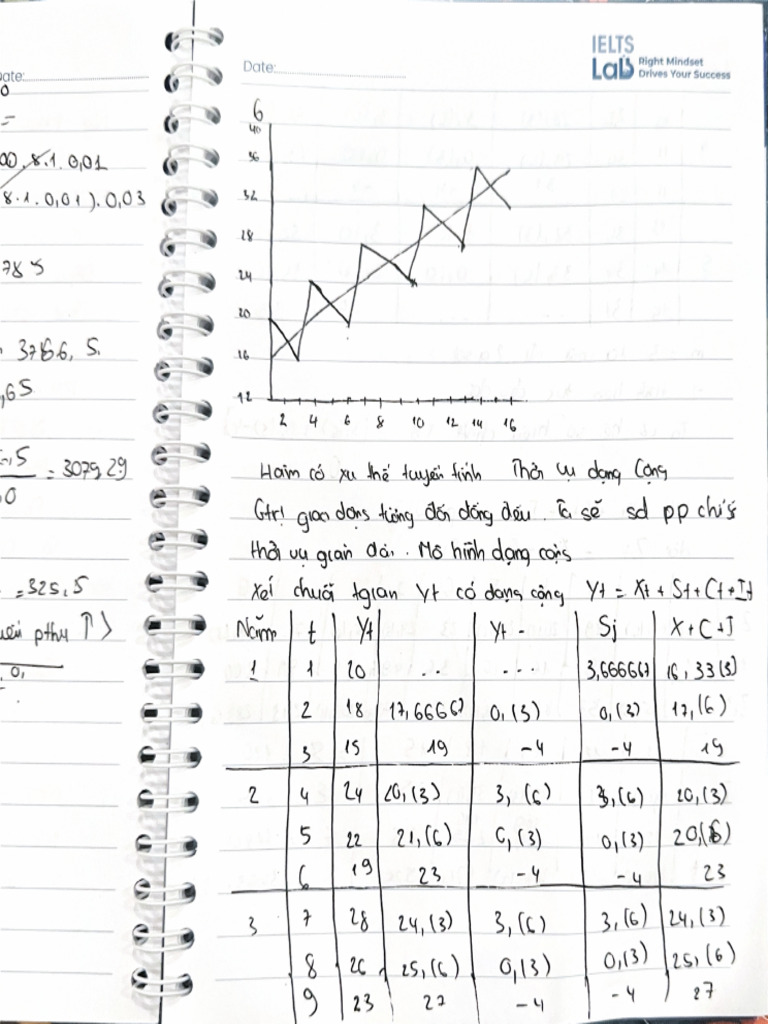 IELTS
Lab Right Mindset
Drives Your Success
Date:
Date:
0
=
00. 8.1. 0,01
8.1.0,01).0,03
785
3766, 5.
,65
,5 = 3079,29
0
= 325,5
pthu ↑>
0,
6
40
36
32
28
24
20
16
12
2 4 6 8 10 12 14 16
Haim có xu thế tuyến tính Thời vụ dạng Cộng
Gtrị giao động tương đối đồng đều. Ta sẽ sd pp chỉ số
thời vụ giản đơn. Mô hình dạng cộng
Xét chuỗi tgian Yt có dạng cộng Yt = Xt + St + Ct + It
Năm t Yt Yt - Sj X + C + I
1 1 20 ... ... 3,666667 16,33(3)
2 18 17,66667 0,(3) 0,(3) 17,(6)
3 15 19 -4 -4 19
2 4 24 20,(3) 3,(6) 3,(6) 20,(3)
5 22 21,(6) 0,(3) 0,(3)
6 19 23 -4 -4 23
3 7 28 24,(3) 3,(6) 3,(6) 24,(3)
8 26 25,(6) 0,(3) 0,(3) 25,(6)
9 23 27 -4 -4 27